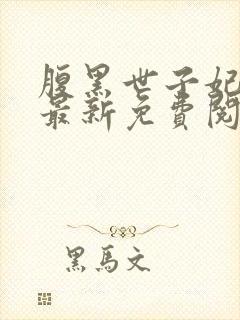 腹黑世子妃
最新免費閱
黑馬文